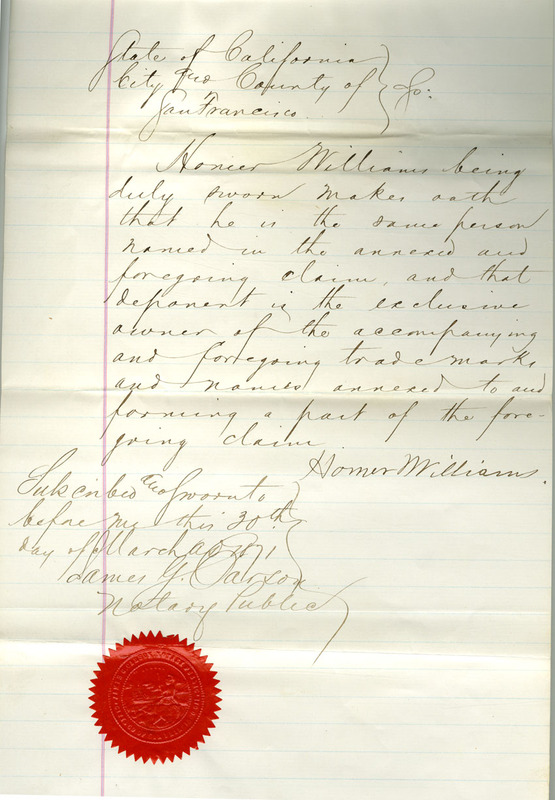 State of California
City and County of } ss:
San Francisco
Homer Williams being
duly sworn makes oath
that he is the same person
named in the annexed and
foregoing claim, and that
deponent is the exclusive
owner of the accompanying
and foregoing trade marks
and names annexed to and
forming a part of the fore-
going claim
Homer Williams.
Subscribed and Sworn to
before me this 30th
day of March AD 1871
James G. Carson
Notary Public